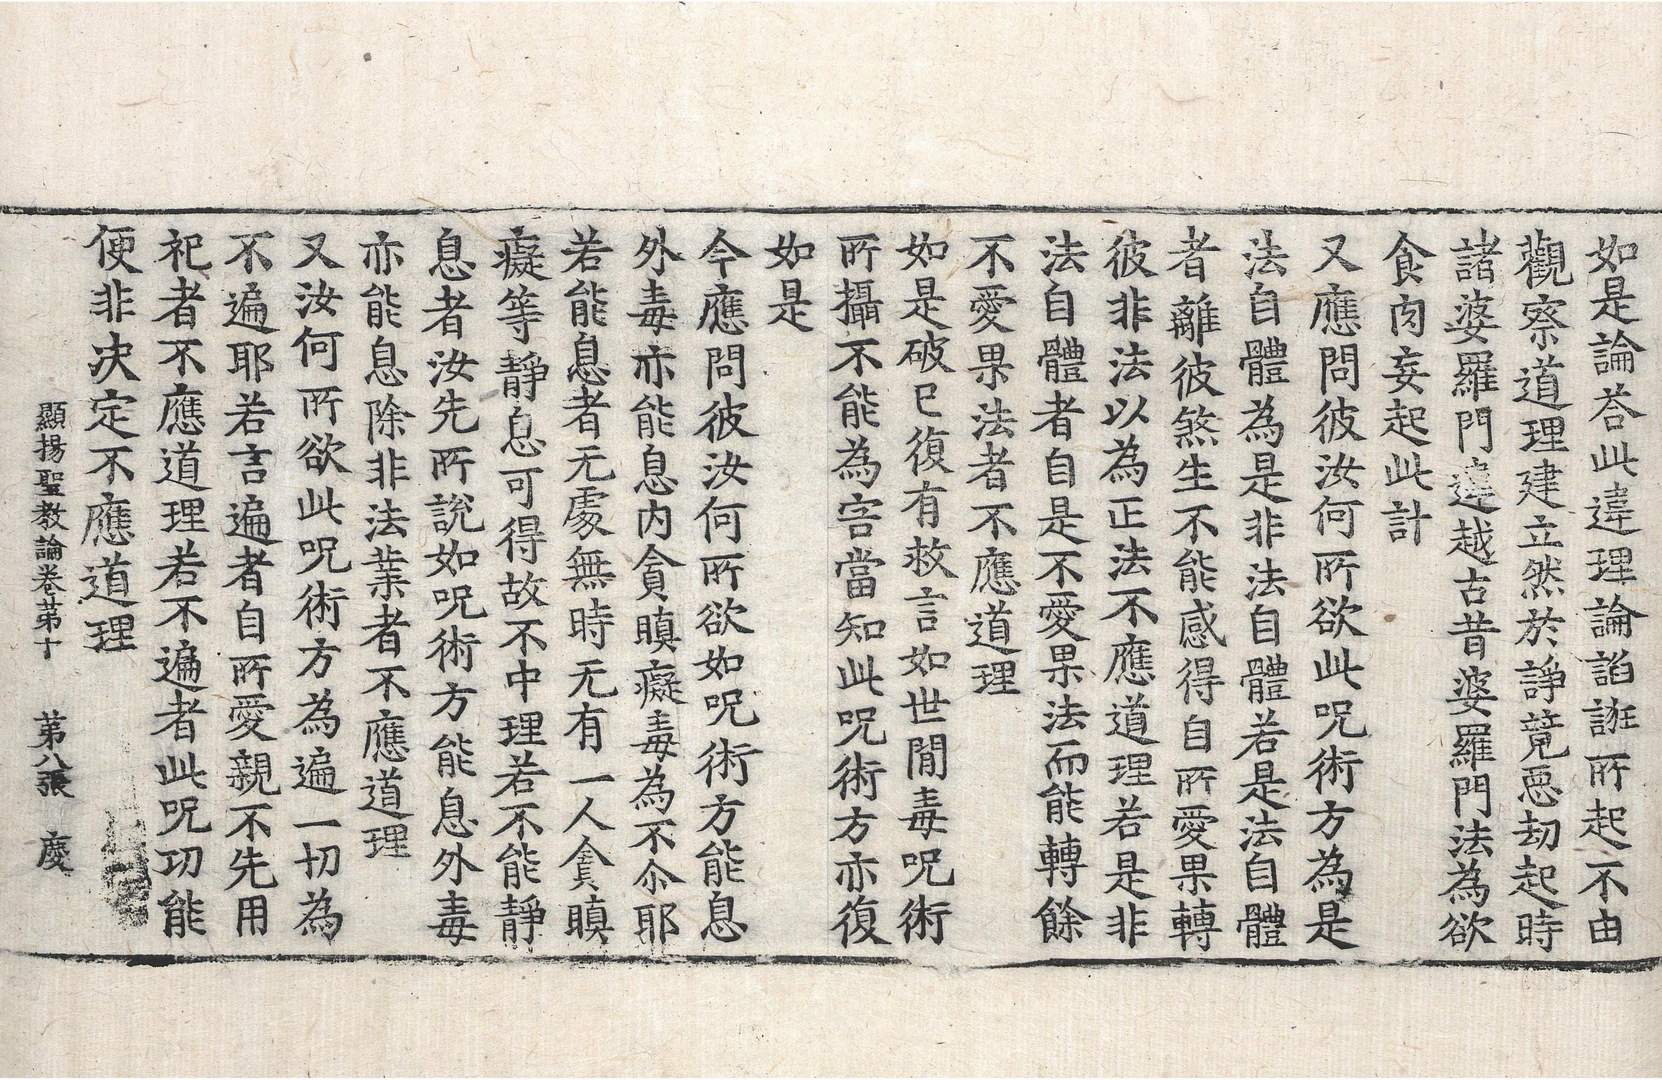 如是論荅此違理論謟誑所起不由
觀察道理建立然於諍竟惡劫起時
諸婆羅門違越古昔婆羅門法為欲
食肉妄起此計
又應問彼汝何所欲此呪術方為是
法自體為是非法自體若是法自體
者離彼煞生不能感得自所愛果轉
彼非法以為正法不應道理若是非
法自體者自是不愛果法而能轉餘
不愛果法者不應道理
如是破已復有救言如世間毒呪術
所攝不能為害當知此呪術方亦復
如是
今應問彼汝何所欲如呪術方能息
外毒亦能息內貪瞋癡毒為不尒耶
若能息者无處無時无有一人貪瞋
癡等静息可得故不中理若不能静
息者汝先所說如呪術方能息外毒
亦能息除非法業者不應道理
又汝何所欲此呪術方為遍一切為
不遍耶若言遍者自所愛親不先用
祀者不應道理若不遍者此呪功能
便非决定不應道理
顯揚聖教論卷苐十　苐八張　慶